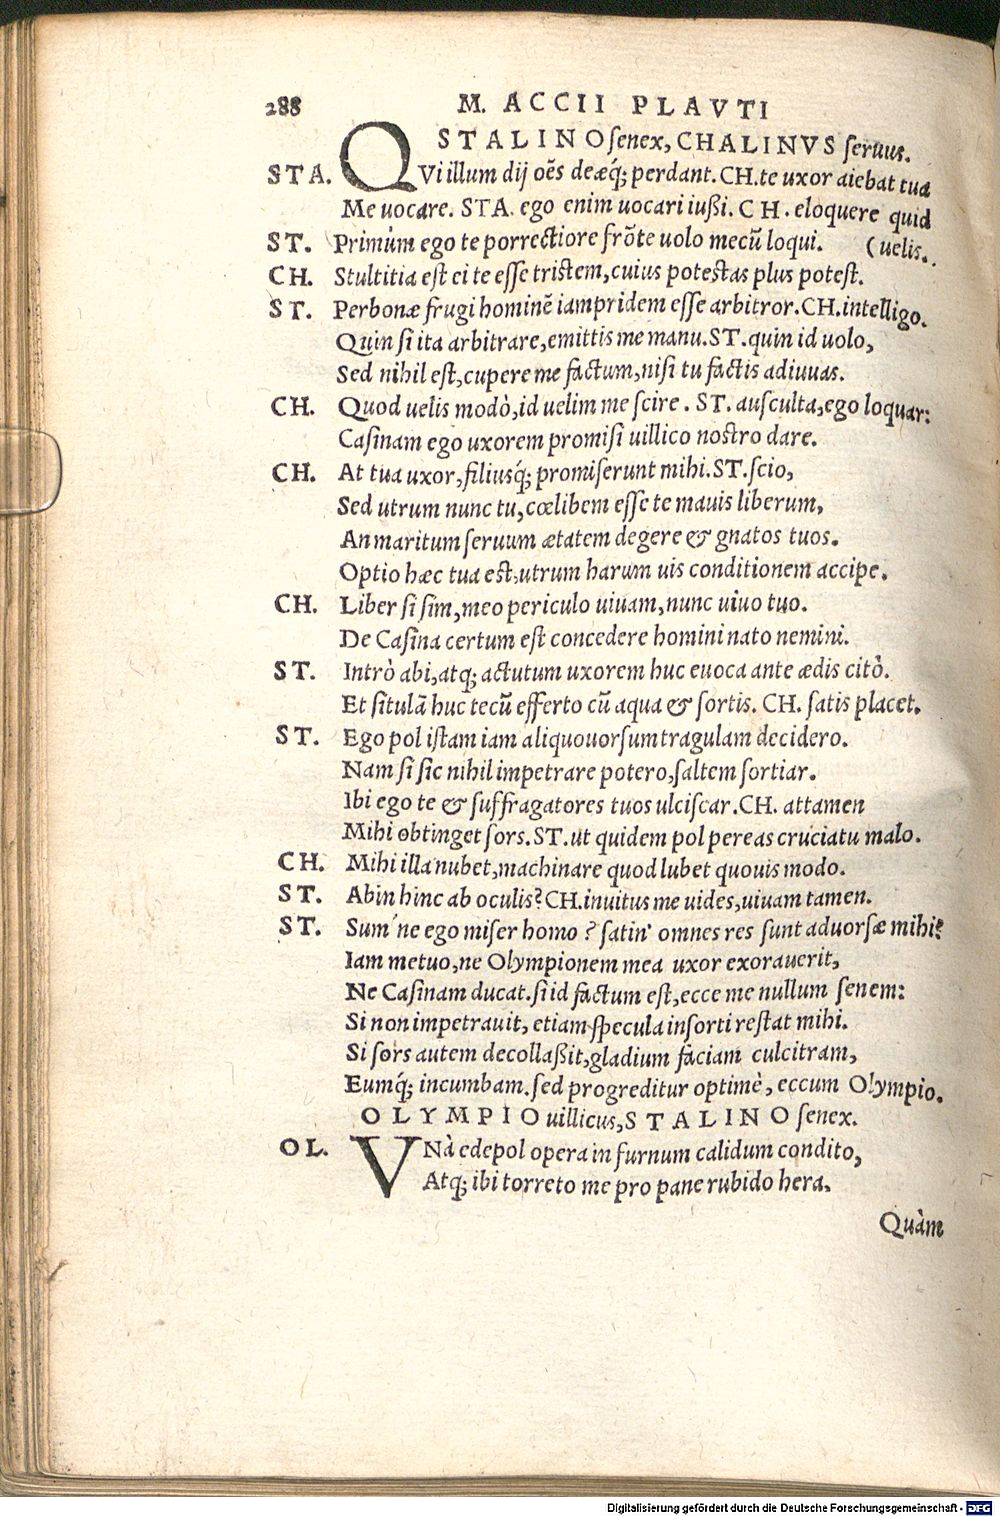 288 M. ACCII PLAVTI
STALINO ſenex, CHALINVS ſeruus.
STA. QVi illum dij oẽs deæq́; perdant. CH. te uxor aiebat tua
Me uocare. STA. ego enim uocari iußi. CH. eloquere quid
ST. Primùm ego te porrectiore frõte uolo mecũ loqui. (uelis.
CH. Stultitia eſt ei te eſſe triſtem, cuius poteſtas plus poteſt.
ST. Perbonæ frugi hominẽ iampridem eſſe arbitror. CH. intelligo.
Quin ſi ita arbitrare, emittis me manu. ST. quin id uolo,
Sed nihil eſt, cupere me factum, niſi tu factis adiuuas.
CH. Quod uelis modò, id uelim me ſcire. ST. auſculta, ego loquar:
Caſinam ego uxorem promiſi uillico noſtro dare.
CH. At tua uxor, filiusq́; promiſerunt mihi. ST. ſcio,
Sed utrum nunc tu, cœlibem eſſe te mauis liberum,
An maritum ſeruum ætatem degere & gnatos tuos.
Optio hæc tua eſt, utrum harum uis conditionem accipe.
CH. Liber ſi ſim, meo periculo uiuam, nunc uiuo tuo.
De Caſina certum eſt concedere homini nato nemini.
ST. Intrò abi, atq; actutum uxorem huc euoca ante ædis citò.
Et ſitulã huc tecũ efferto cũ aqua & ſortis. CH. ſatis placet.
ST. Ego pol iſtam iam aliquouorſum tragulam decidero.
Nam ſi ſic nihil impetrare potero, ſaltem ſortiar.
Ibi ego te & ſuffragatores tuos ulciſcar. CH. attamen
Mihi obtinget ſors. ST. ut quidem pol pereas cruciatu malo.
CH. Mihi illa nubet, machinare quod lubet quouis modo.
ST. Abin hinc ab oculis? CH. inuitus me uides, uiuam tamen.
ST. Sum'ne ego miſer homo? ſatin' omnes res ſunt aduorſæ mihi?
Iam metuo, ne Olympionem mea uxor exorauerit,
Ne Caſinam ducat. ſi id factum eſt, ecce me nullum ſenem:
Si non impetrauit, etiam ſpecula in ſorti reſtat mihi.
Si ſors autem decollaßit, gladium faciam culcitram,
Eumq́; incumbam. ſed progreditur optimè, eccum Olympio.
OLYMPIO uillicus, STALINO ſenex.
OL. VNà edepol opera in furnum calidum condito,
Atq; ibi torreto me pro pane rubido hera.
Quàm
Digitalisierung gefördert durch die Deutsche Forschungsgemeinschaft - DFG